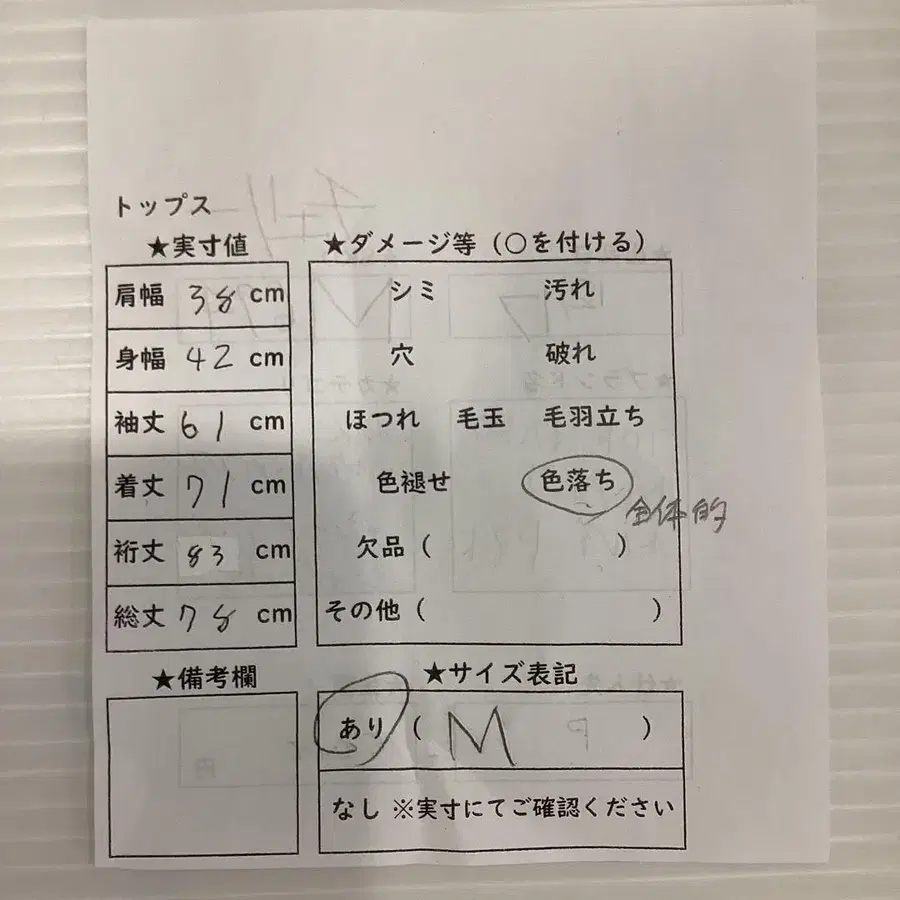 トップス
★実寸値
肩幅 38 cm
身幅 42 cm
袖丈 61 cm
着丈 71 cm
裄丈 83 cm
総丈 78 cm
★ダメージ等（○を付ける）
シミ 汚れ
穴 破れ
ほつれ 毛玉 毛羽立ち
色褪せ 色落ち 全体的
欠品（ ）
その他（ ）
★備考欄
★サイズ表記
あり（ M ）
なし ※実寸にてご確認ください